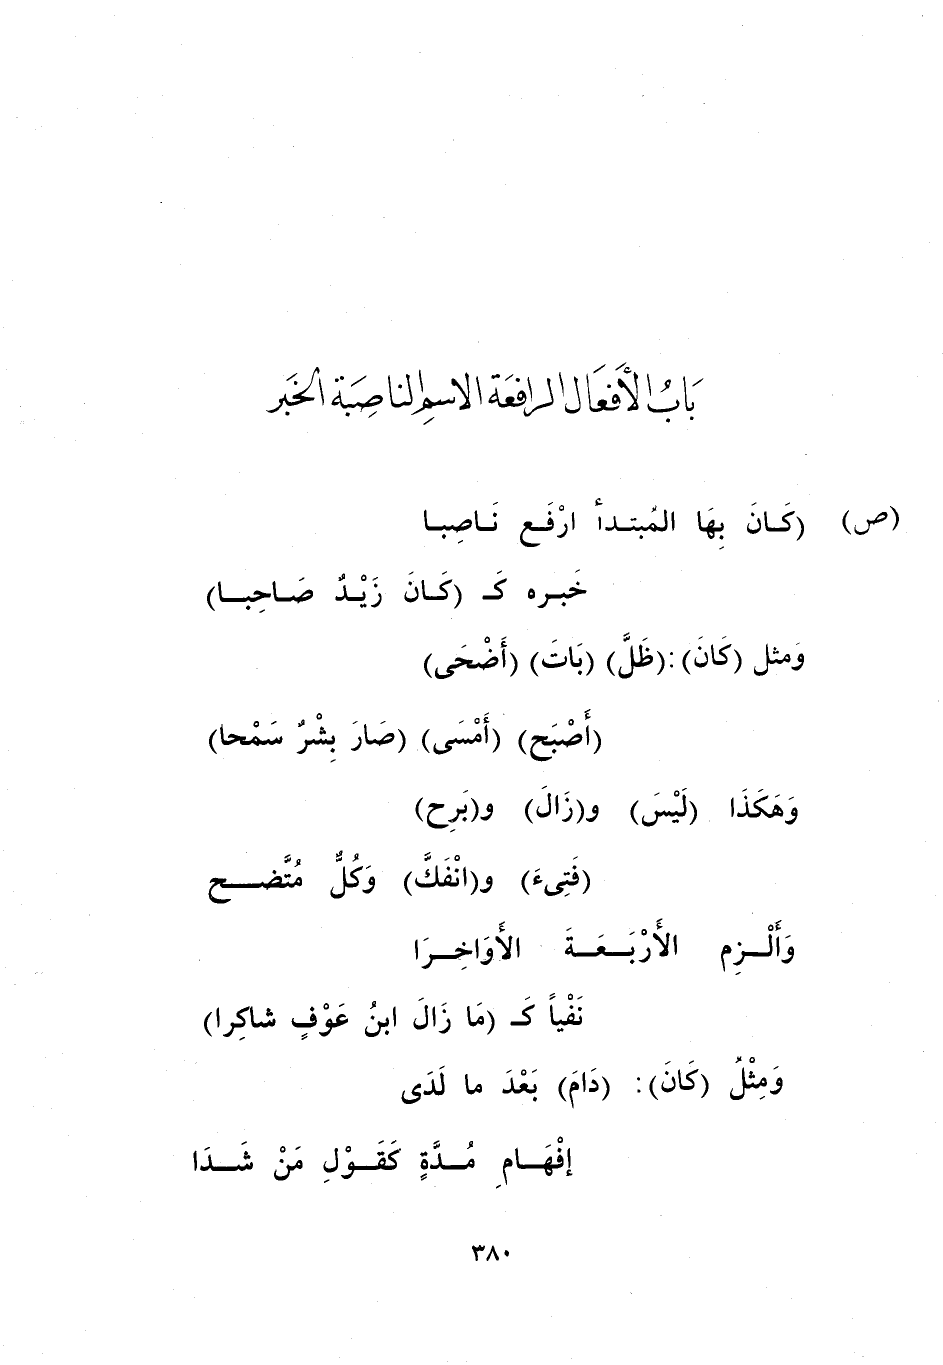 بَابُ الأَفعَال الرافِعَة الاسمِ الناصِبَة الخَبَر
(ص) (كَـانَ بِهَا المُبتـدأ ارْفَـع نَـاصِبـا
خَبـره كَـ (كَـانَ زَيْـدٌ صَـاحِبـا)
وَمثل (كَانَ): (ظَلَّ) (بَاتَ) (أَضْحَى)
(أَصْبَح) (أَمْسَى) (صَارَ بِشْرٌ سَمْحا)
وَهَكَذَا (لَيْسَ) و(زَالَ) و(بَرِح)
(فَتِىءَ) و(انْفَكَّ) وَكُلٌّ مُتَّضـــح
وَأَلْــزِم الأَرْبَــعَــةَ الأَوَاخِـرَا
نَفْياً كَـ (مَا زَالَ ابنُ عَوْفٍ شاكِرا)
وَمِثْلُ (كَانَ): (دَامَ) بَعْدَ ما لَدَى
إفْهَــامِ مُــدَّةٍ كَقَــوْلِ مَنْ شَــدَا
٣٨٠